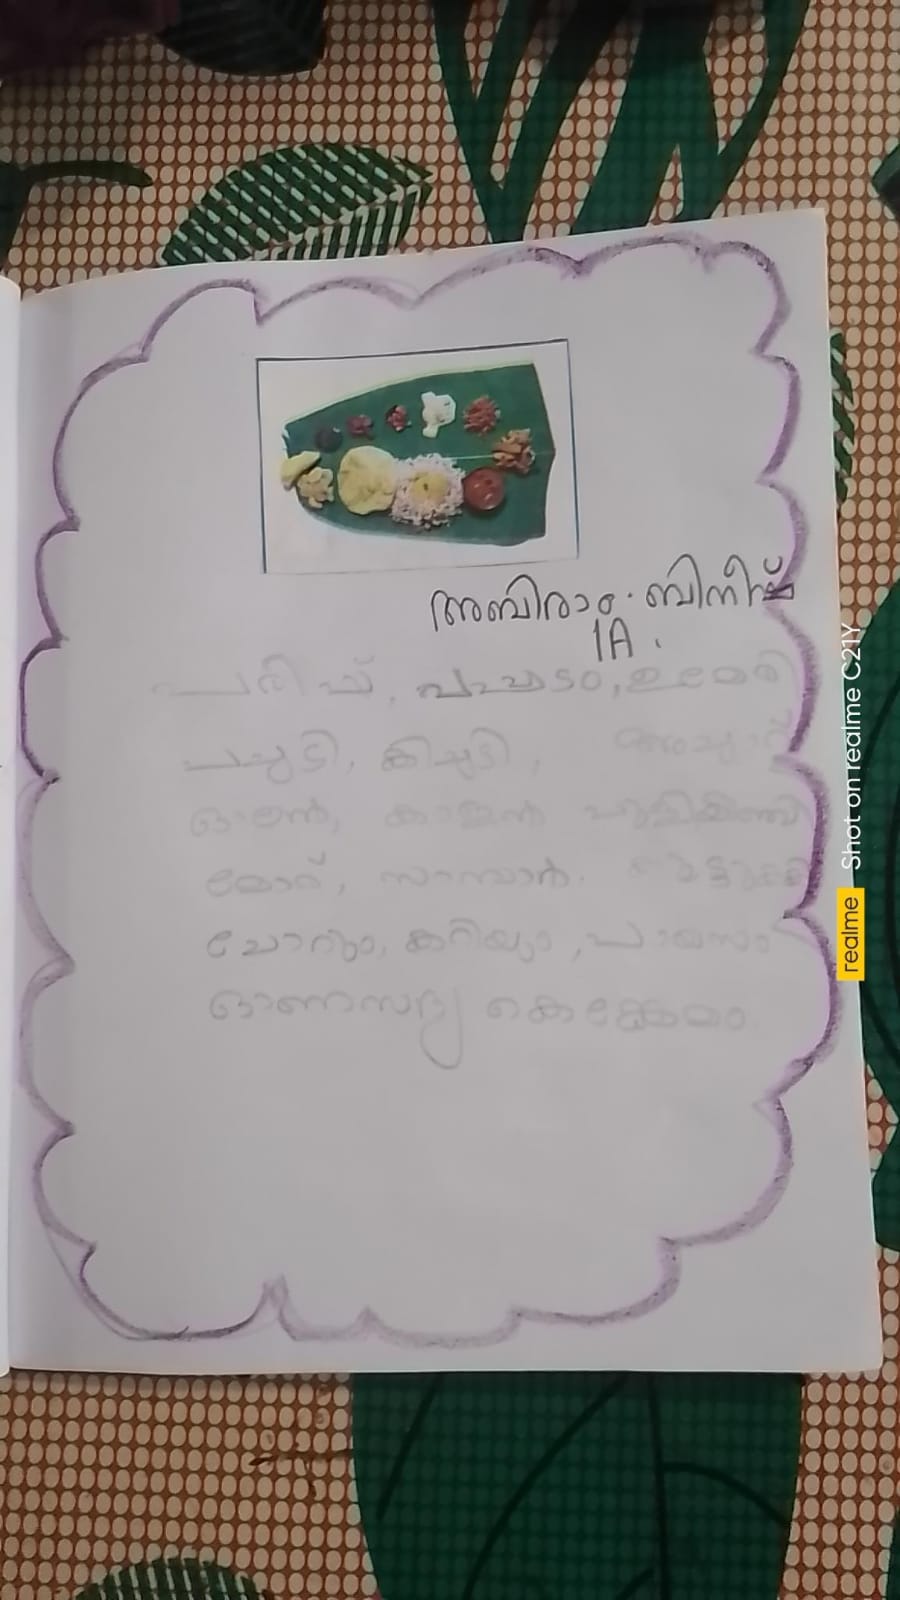 അബിരാം. ബിനീഷ്
1A.
പരിപ്പ്, പപ്പടം, ഉപ്പേരി
പച്ചടി, കിച്ചടി, അച്ചാർ
ഓലൻ, കാളൻ പുളിയിഞ്ചി
മോര്, സാമ്പാർ.
ചോറും, കറിയും, പായസം
ഓണസദ്യ കെങ്കേമം
Shot on realme C21Y
realme